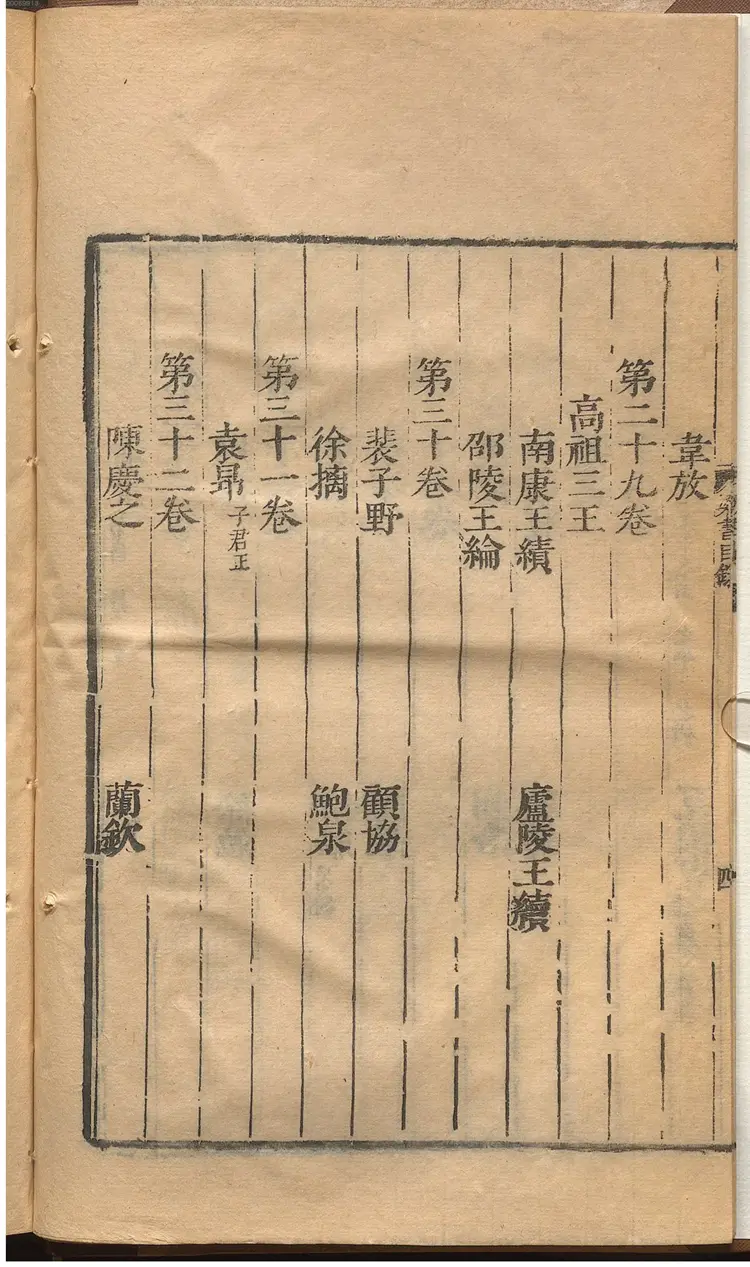 韋放
第二十九卷
高祖三王
南康王績　廬陵王續
邵陵王綸
第三十卷
裴子野　顧協
徐摛　鮑泉
第三十一卷
袁昂 子君正
第三十二卷
陳慶之　蘭欽
書目錄
四